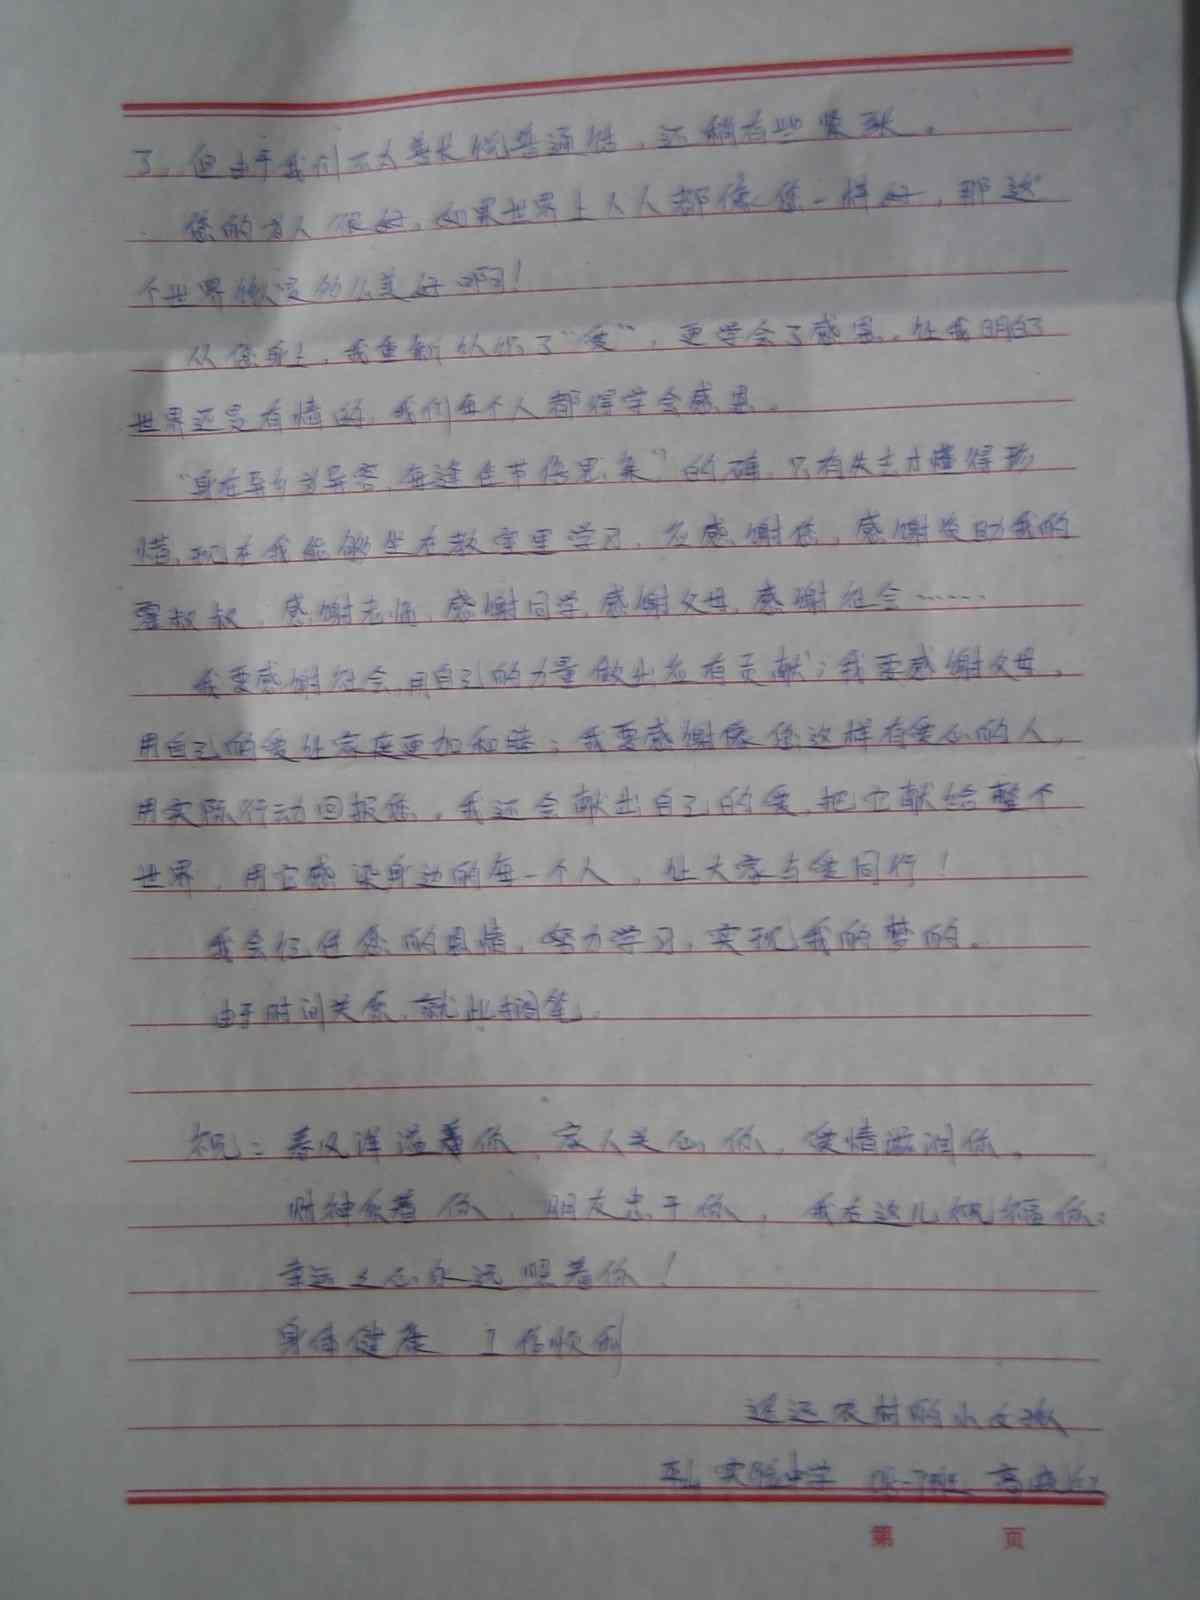 了。但由于我们不太善长说普通话，还稍有些紧张。
您的为人很好，如果世界上人人都像您一样好，那这
个世界做该的儿美好啊！
从您身上，我重新认识了“爱”，更学会了感恩。让我明白了
世界还是有情的，我们每个人都得学会感恩。
“身在异乡为异客，每逢佳节倍思亲”的确，只有失去才懂得珍
惜，现在我能够坐在教室里学习，左感谢您，感谢资助我的
叔叔，感谢老师，感谢同学，感谢父母，感谢社会……
我要感谢社会，用自己的力量做出应有贡献；我要感谢父母，
用自己的爱让家庭更加和睦；我要感谢像您这样有爱心的人，
用实际行动回报您。我还会献出自己的爱，把它献给整个
世界，用它感染身边的每一个人，让大家与爱同行！
我会记住您的恩情，努力学习，实现我的梦的。
由于时间关系，就此搁笔。
祝：春风洋溢着你，家人关心你，爱情滋润你，
财神系着你，朋友忠于你，我在这儿祝福你：
幸运之心永远照着你！
身体健康 工作顺利
遥远农村的小女孩
实验中学 班 高
第 页